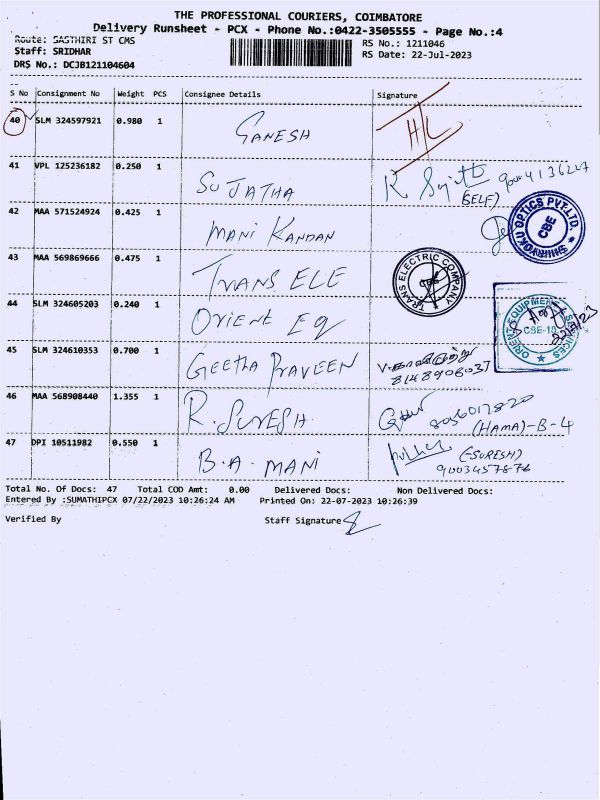 THE PROFESSIONAL COURIERS, COIMBATORE
Delivery Runsheet - PCX - Phone No.:0422-3505555 - Page No.:4
Route: SASTHIRI ST CMS
RS No.: 1211046
Staff: SRIDHAR
RS Date: 22-Jul-2023
DRS No.: DCJB121104604
S No Consignment No Weight PCS Consignee Details Signature
40 SLM 324597921 0.980 1 GANESH H/L
41 VPL 125236182 0.250 1 SUJATHA K
(SELF)
42 MAA 571524924 0.425 1 MANI KANDAN
OPTICS PVT.LTD. CBE
43 MAA 569869666 0.475 1 TRANS ELE
TRANS ELECTRIC COMPANY
44 SLM 324605203 0.240 1 ORIENT EQ
ORIENT EQUIPMENT SERVICES CBE-18
45 SLM 324610353 0.700 1 GEETHA PRAVEEN
46 MAA 568908440 1.355 1 R. SURESH.
(HAMA)-B-4
47 DPI 10511982 0.550 1 B.A. MANI
(SURESH)
9003457876
Total No. Of Docs: 47 Total COD Amt: 0.00 Delivered Docs: Non Delivered Docs:
Entered By :SUMATHIPCX 07/22/2023 10:26:24 AM Printed On: 22-07-2023 10:26:39
Verified By Staff Signature